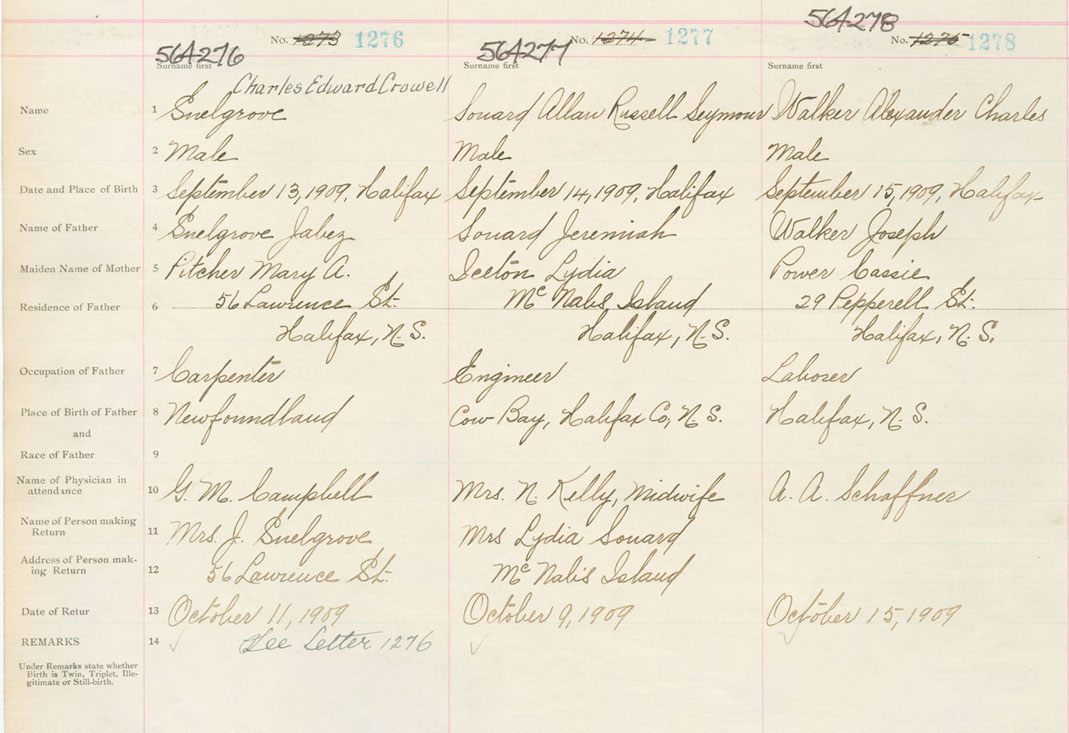 564276
No. 1273 1276
564277
No. 1274 1277
564278
No. 1275 1278
Surname first
Surname first
Surname first
Charles Edward Crowell
Name 1 Snelgrove Souard Allan Russell Seymour Walker Alexander Charles
Sex 2 Male Male Male
Date and Place of Birth 3 September 13, 1909, Halifax September 14, 1909, Halifax September 15, 1909, Halifax
Name of Father 4 Snelgrove Jabez Souard Jeremiah Walker Joseph
Maiden Name of Mother 5 Pitcher Mary A. Iceton Lydia Power Cassie
Residence of Father 6 56 Lawrence St. Mc Nabs Island 29 Pepperell St.
Halifax, N.S. Halifax, N.S. Halifax, N.S.
Occupation of Father 7 Carpenter Engineer Laborer
Place of Birth of Father 8 Newfoundland Cow Bay, Halifax Co, N.S. Halifax, N.S.
and
Race of Father 9
Name of Physician in
attendance 10 G. M. Campbell Mrs. N. Kelly, Midwife A. A. Schaffner
Name of Person making
Return 11 Mrs. J. Snelgrove Mrs Lydia Souard
Address of Person mak-
ing Return 12 56 Lawrence St. Mc Nabs Island
Date of Retur 13 October 11, 1909 October 9, 1909 October 15, 1909
REMARKS 14 See Letter 1276
Under Remarks state whether
Birth is Twin, Triplet, Ille-
gitimate or Still-birth.